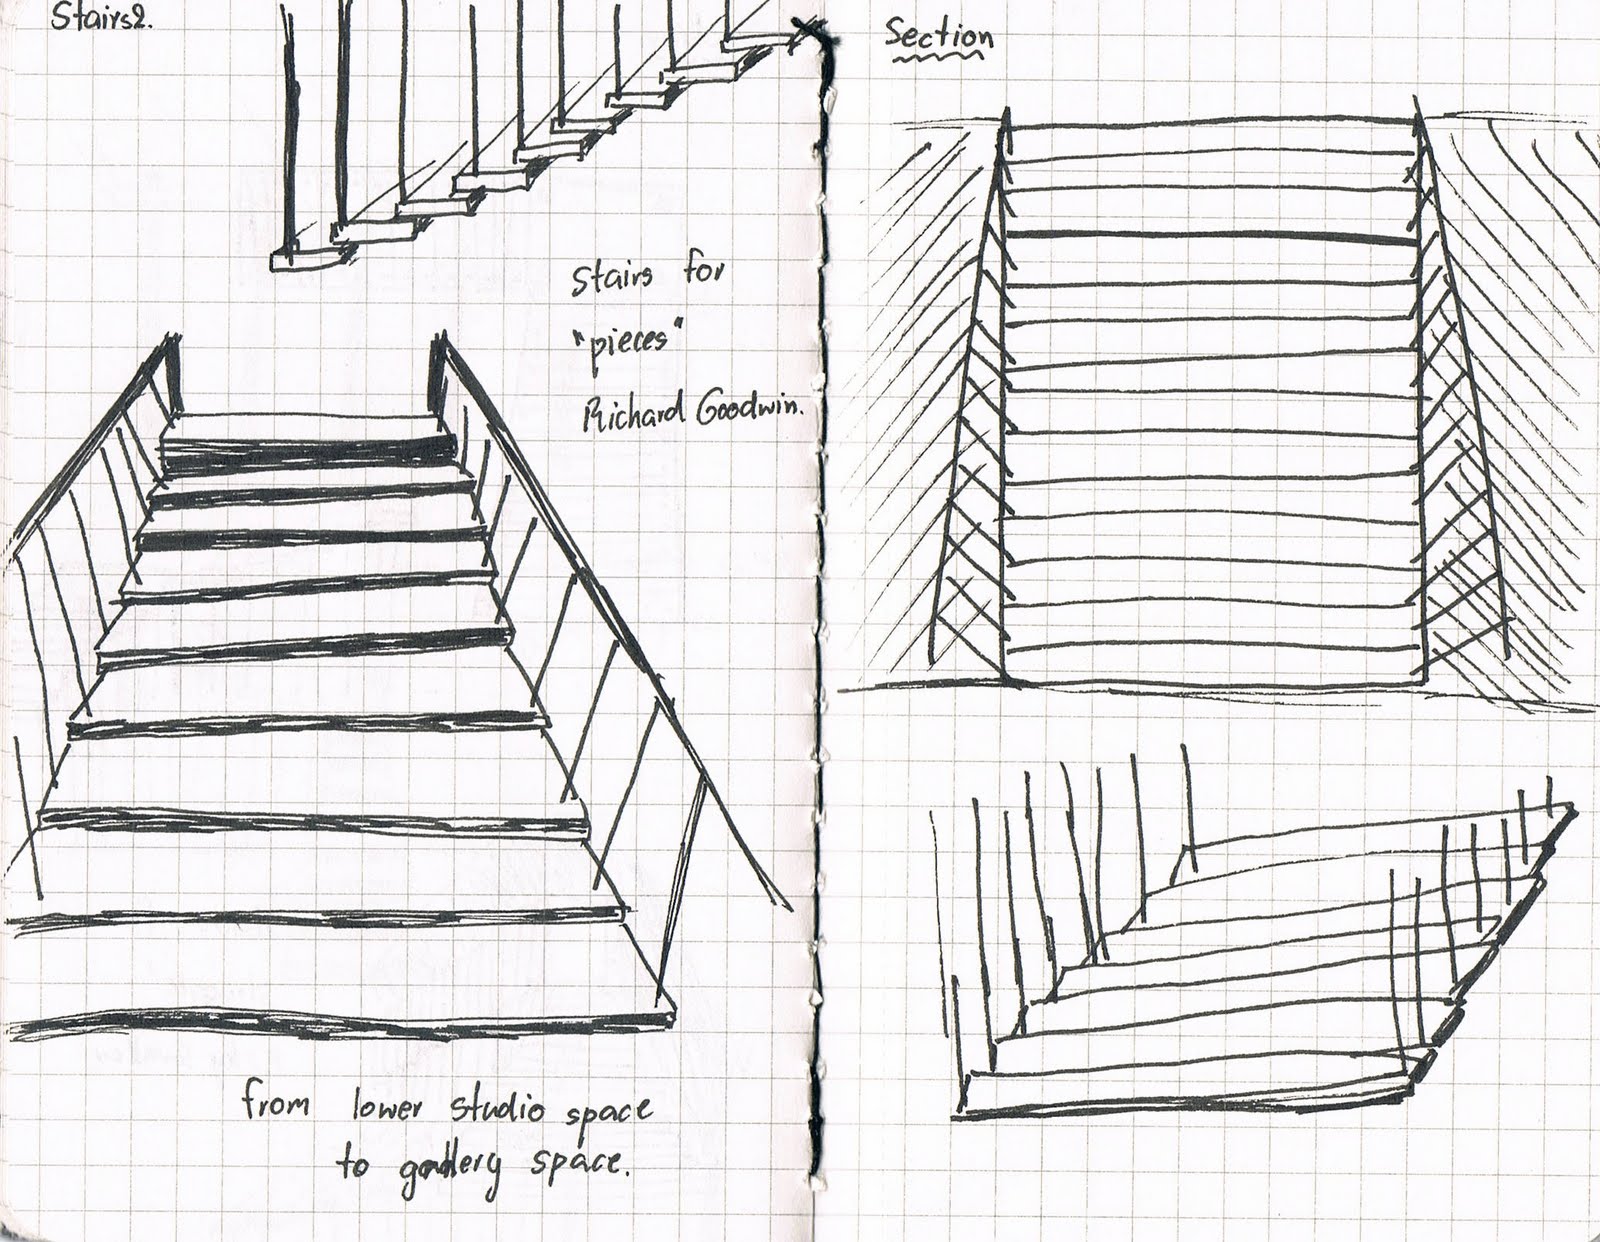 Stairs2.
Stairs for
"pieces"
Richard Goodwin.
from lower studio space
to gallery space.
Section